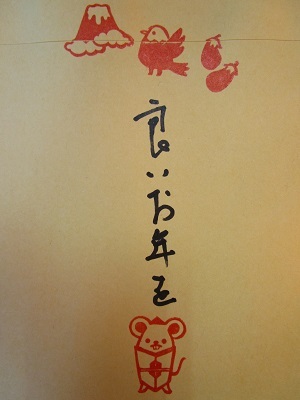 良いお年を